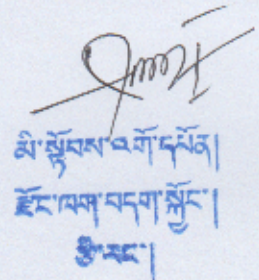 མི་སྟོབས་འགོ་དཔོན།
རྫོང་ཁག་བདག་སྐྱོང་།